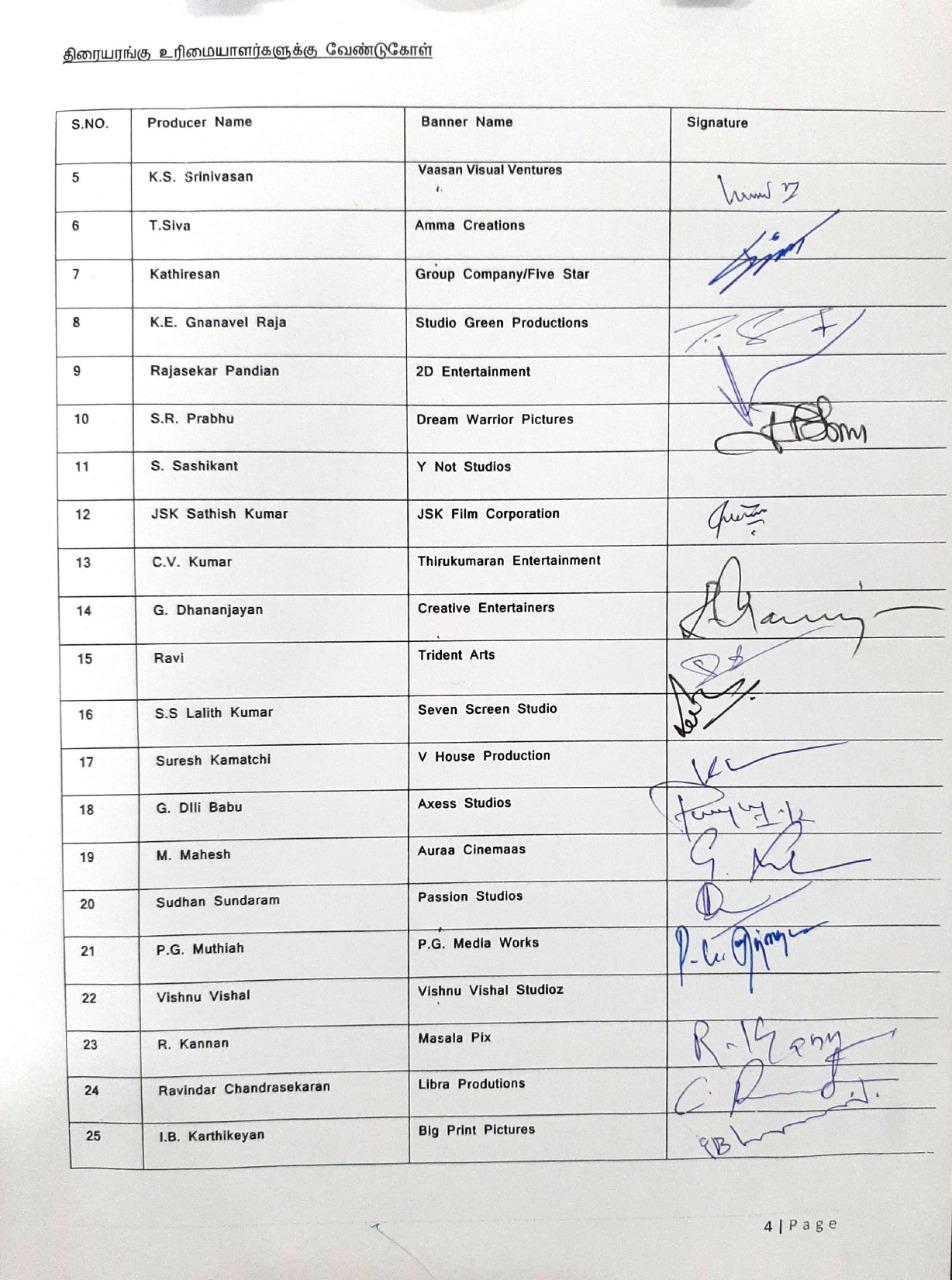 திரையரங்கு உரிமையாளர்களுக்கு வேண்டுகோள்
S.NO. Producer Name Banner Name Signature
5 K.S. Srinivasan Vaasan Visual Ventures
6 T.Siva Amma Creations
7 Kathiresan Group Company/Five Star
8 K.E. Gnanavel Raja Studio Green Productions
9 Rajasekar Pandian 2D Entertainment
10 S.R. Prabhu Dream Warrior Pictures
11 S. Sashikant Y Not Studios
12 JSK Sathish Kumar JSK Film Corporation
13 C.V. Kumar Thirukumaran Entertainment
14 G. Dhananjayan Creative Entertainers
15 Ravi Trident Arts
16 S.S Lalith Kumar Seven Screen Studio
17 Suresh Kamatchi V House Production
18 G. DIli Babu Axess Studios
19 M. Mahesh Auraa Cinemaas
20 Sudhan Sundaram Passion Studios
21 P.G. Muthiah P.G. Media Works
22 Vishnu Vishal Vishnu Vishal Studioz
23 R. Kannan Masala Pix
24 Ravindar Chandrasekaran Libra Produtions
25 I.B. Karthikeyan Big Print Pictures
4 | Page